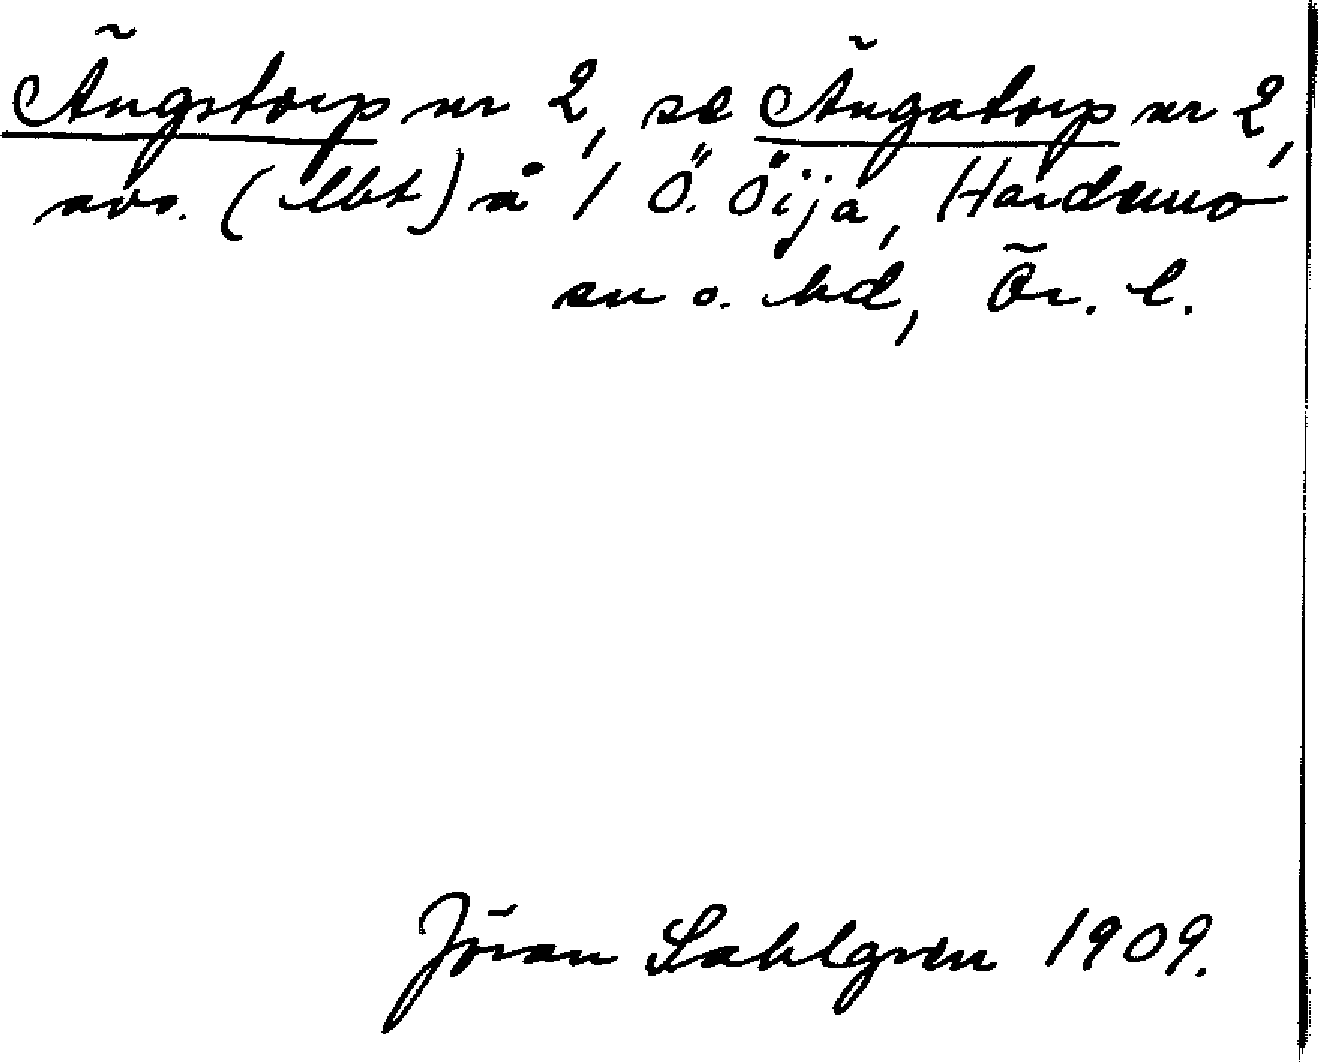 Ängstorp nr 2, se Ängatorp nr 2,
avs. (lbt) å 1 Ö. Öija, Hardemo
sn o. hd, Ör. l.
Jöran Sahlgren 1909.